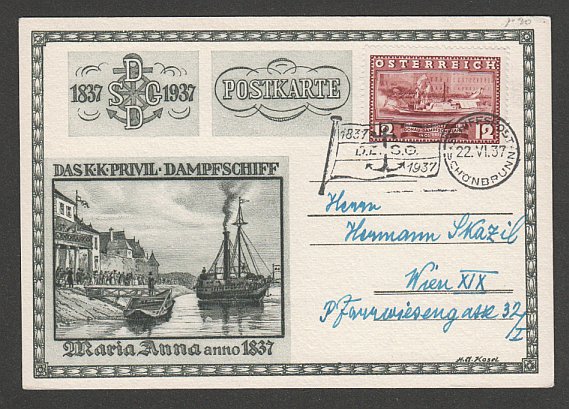 1837 DDSG 1937
POSTKARTE
ÖSTERREICH
12 12
1837
D.D.S.G.
1937
SCHIFFSPOST
22.VI.37
SCHÖNBRUNN
DAS K·K·PRIVIL·DAMPFSCHIFF
Maria Anna anno 1837
Herrn
Hermann Skazil
Wien XIX
Pfarrwiesengasse 32/I